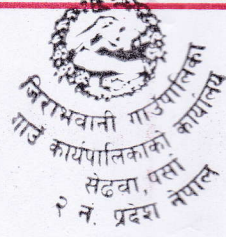 जिराभवानी गाउँपालिका
गाउँ कार्यपालिकाको कार्यालय
सेढवा, पर्सा
२ नं. प्रदेश नेपाल